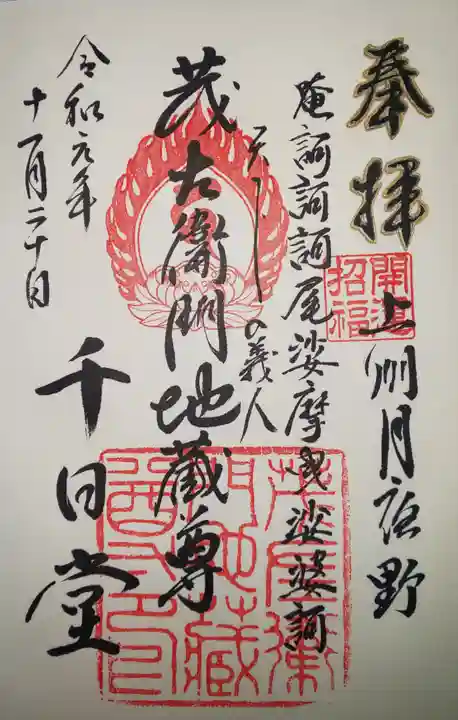 奉拝
開運
招福
上州月夜野
唵訶訶訶尾娑摩曳娑婆訶
天下の義人
茂左衛門地蔵尊
茂左衛
門地蔵
尊之印
千日堂
令和元年
十一月二十日